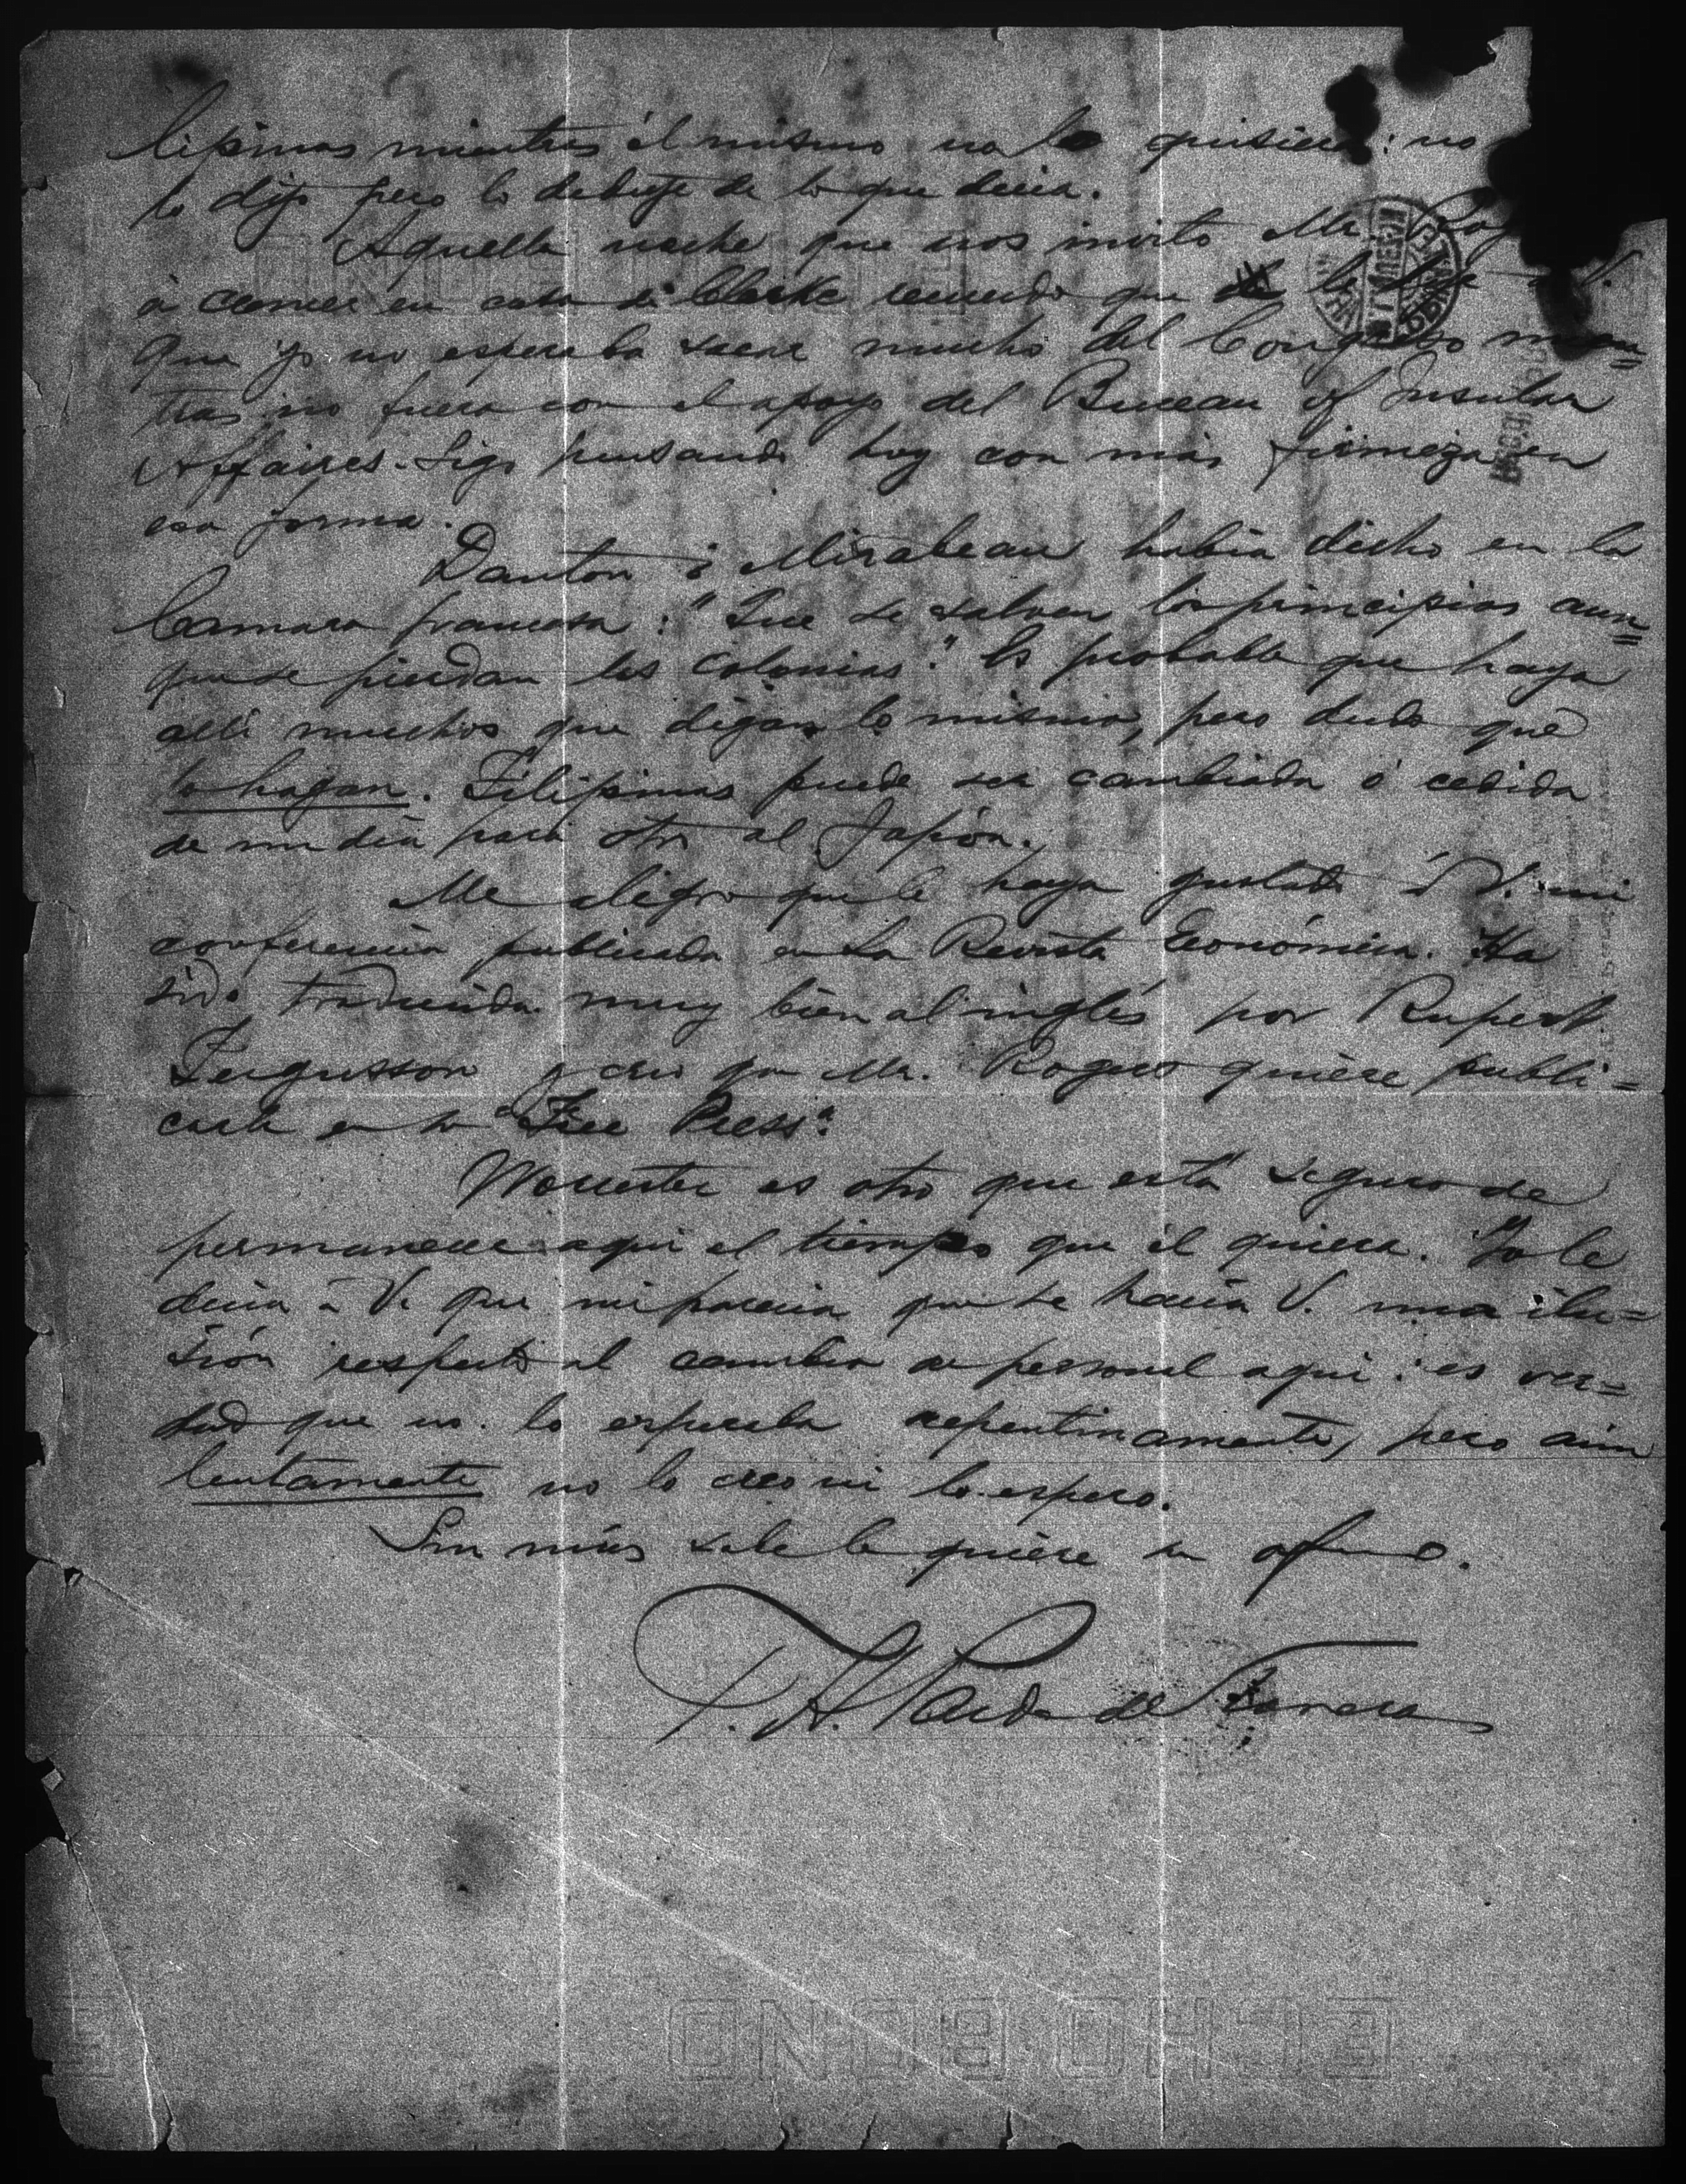 lipinas mientras él mismo no lo quisiera: no
lo dijo pero lo deduje de lo que decia.
Aquella noche que nos invitó Mr.
á comer en casa de Clarke recuerdo que le dije á V.
que yo no esperaba sacar mucho del Congreso mien=
tras no fuera con el apoyo del Bureau of Insular
Affaires. Sigo pensando hoy con más firmeza en
esa forma.
Danton ó Mirabeau habia dicho en la
Camara francesa: "Que se salven los principios aun=
que se pierdan las Colonias". Es probable que haya
alli muchos que digan lo mismo, pero dudo que
lo hagan. Filipinas puede ser cambiada ó cedida
de un dia para otro al Japón.
Me alegro que le haya gustado á V. mi
conferencia publicada en la Revista Económica. Ha
sido traducida muy bien al inglés por Rupert
Fergusson y creo que Mr. Rogers quiere publi=
carla en la "Free Press".
Worcester es otro que está seguro de
permanecer aqui el tiempo que él quiera. Yo le
decia á V. que me parecia que se hacía V. una ilu=
sión respecto al cambio de personal aqui: es ver=
dad que no lo esperaba repentinamente, pero aún
lentamente no lo creo ni lo espero.
Sin más sabe le quiere su afmo.
T. H. Pardo de Tavera
ECHO BOND